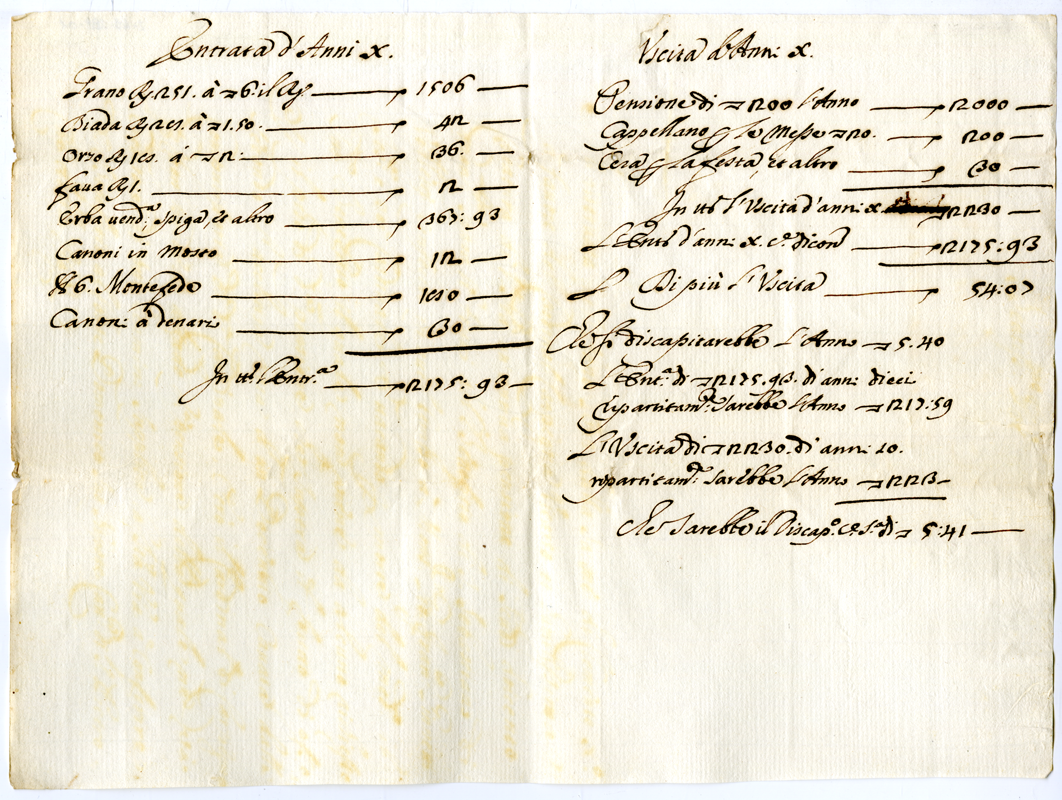 Entrata d'Anni X.
Grano R 251. à 6. il R 1506
Biada R 28. à 1.50. 42
Orzo R 18. à 2: 36.
fava R 1. 2
Erba vend.a, spiga, et altro 367: 93
Canoni in Mosto 12
Montefede 180
Canoni à denari 30
In tt.o l'Entr.a 2175: 93
Uscita d'Anni X.
Pensione di 200 l'Anno 2000
Cappellano p le Messe 20. 200
Cera p la festa, et altro 30
In tt.o l'Uscita d'anni X 2230
L'Ent.a d'anni X. 2175: 93
Di più l'Uscita 54: 07
Che si discapitarebbe l'Anno 5. 40
L'Ent.a di 2175. 93. d'anni dieci
ripartitam.e sarebbe l'Anno 217: 59
L'Uscita di 2230. d'anni 10.
ripartitam.e sarebbe l'Anno 223
Che sarebbe il Discap.o di 5: 41